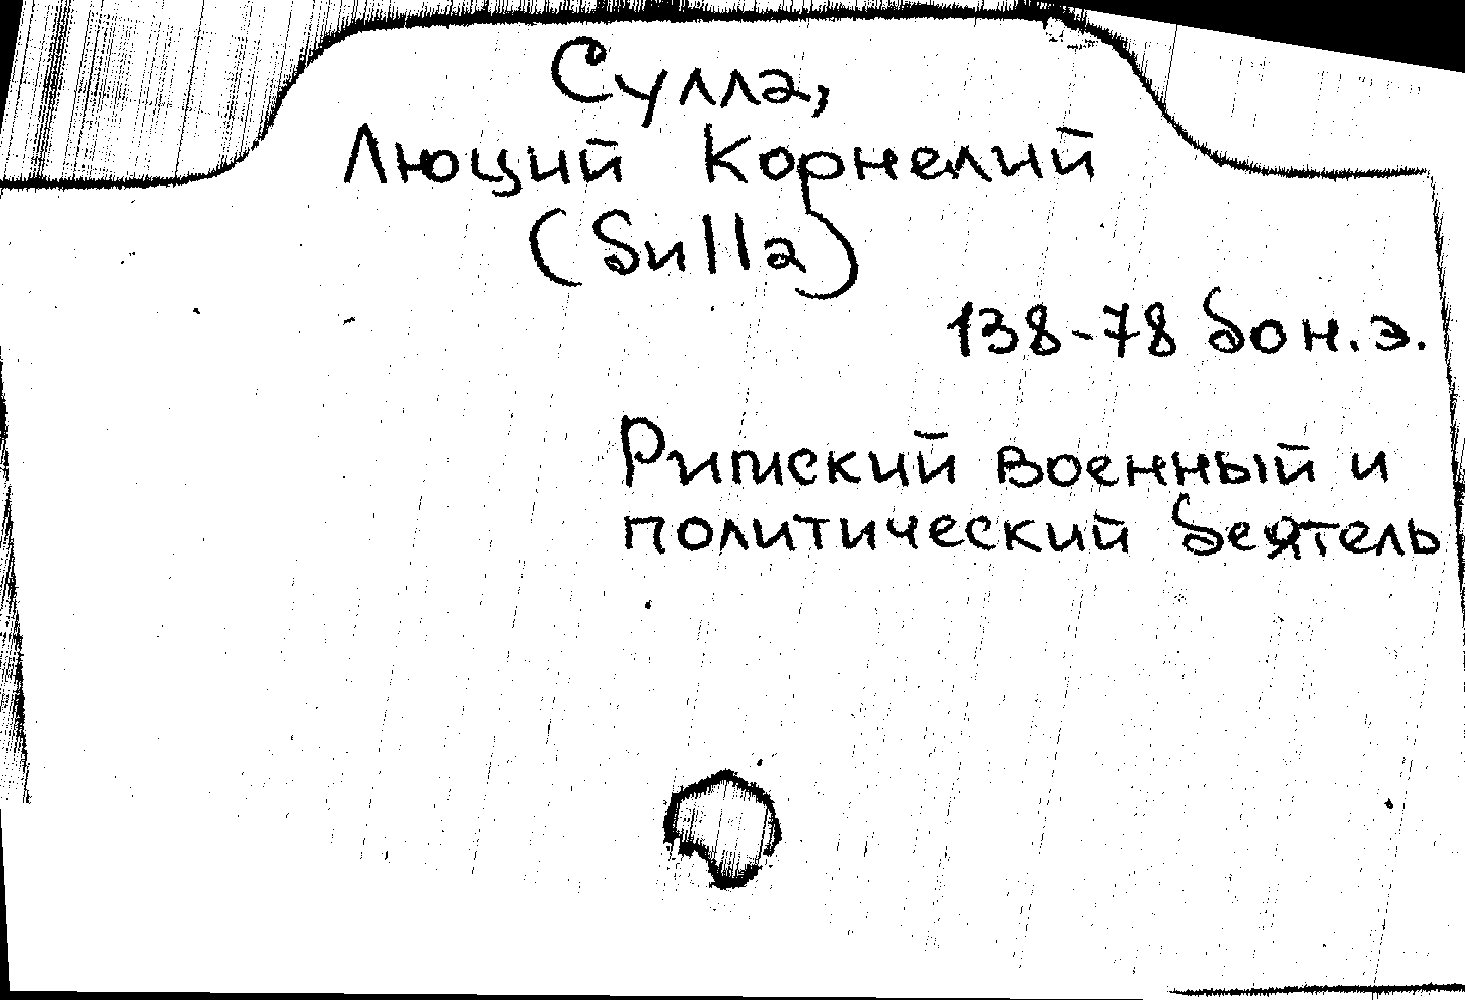 Сулла,
Люций Корнелий
(Sulla)
138-78 до н.э.
Римский военный и
политический деятель